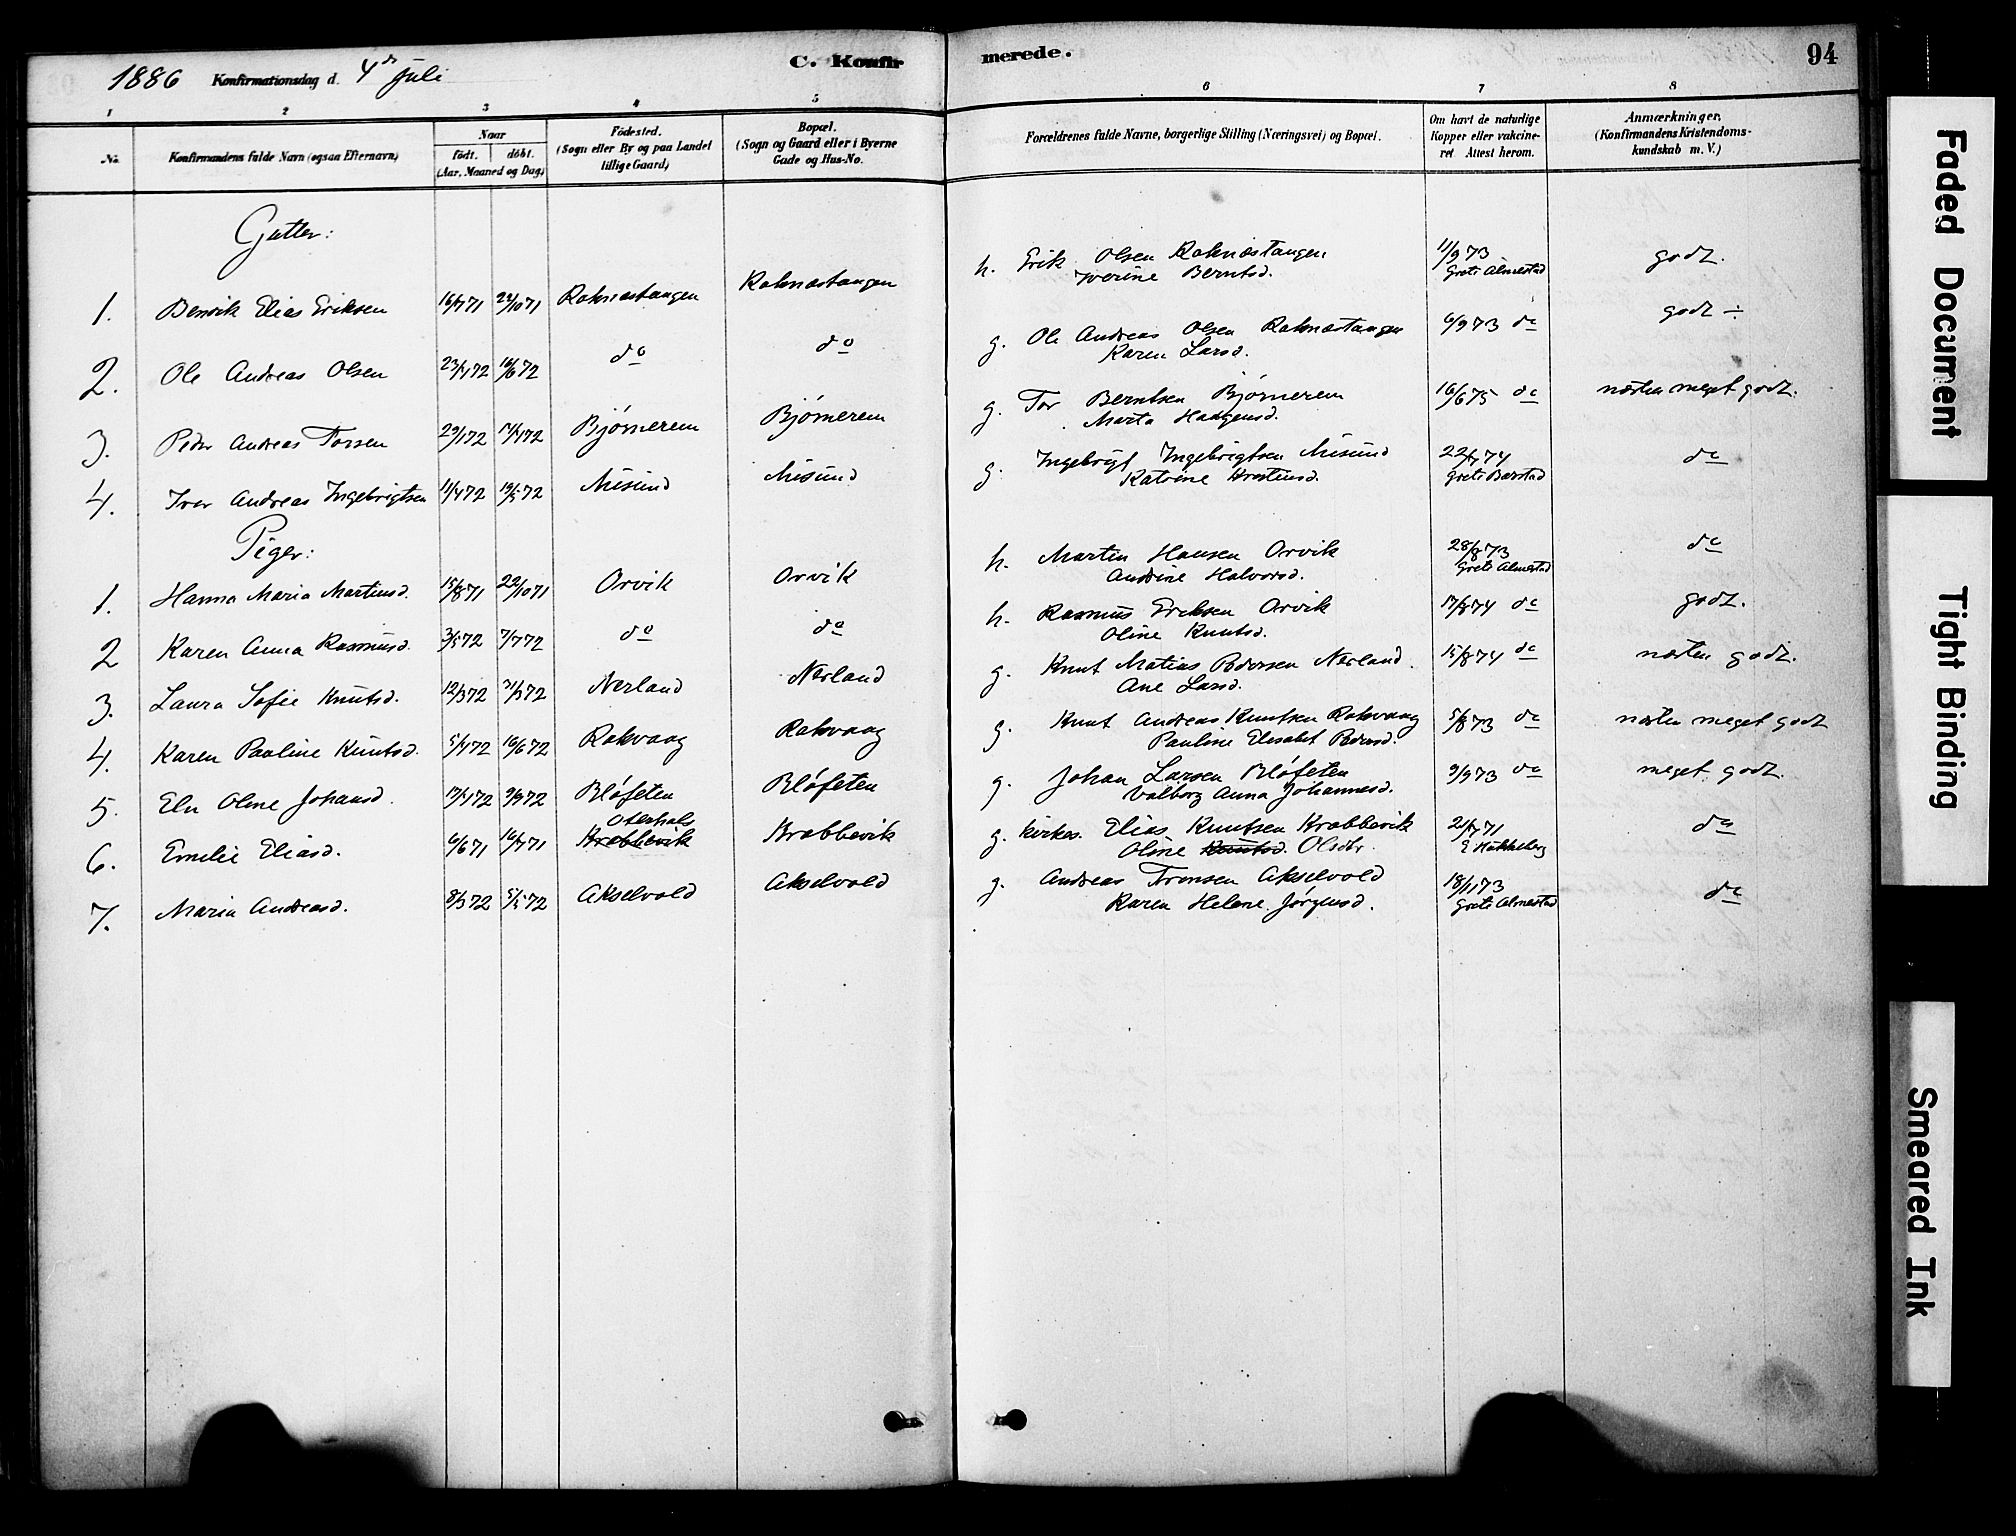 1886 Konfirmationsdag d. 4de Juli C. Konfir
merede. 94
1 2 3 4 5
6 7 8
No. Konfirmandens fulde Navn (ogsaa Efternavn)
Naar
födt. döbt.
(Aar, Maaned og Dag)
Födested.
(Sogn eller By og paa Landet
tillige Gaard)
Bopæl.
(Sogn og Gaard eller i Byerne
Gade og Hus-No.
Forældrenes fulde Navne, borgerlige Stilling (Næringsvei) og Bopæl.
Om havt de naturlige
Kopper eller vakcine-
ret Attest herom.
Anmærkninger.
(Konfirmandens Kristendoms-
kundskab m. V.)
Gutter:
1. Bernik Elias Eriksen 16/7 71 22/10 71 Raknæstangen Raknæstangen h. Erik Olsen Raknæstangen 11/9 73 godt.
Iverine Berntsd. Grete Almestad
2. Ole Andreas Olsen 23/4 72 16/6 72 do do g. Ole Andreas Olsen Raknæstangen 6/9 73 do godt ÷
Karen Larsd.
3. Peder Andreas Torsen 29/1 72 14/4 72 Bjørnerem Bjørnerem g. Tor Berntsen Bjørnerem 16/6 75 do næsten meget godt.
Marta Haagensd.
4. Iver Andreas Ingebrigtsen 11/4 72 19/5 72 Misund Misund g. Ingebrigt Ingebrigtsen Misund 22/7 74 do
Katrine Kristensd. Grete Barstad
Piger:
1. Hanna Maria Martinsd. 15/8 71 22/10 71 Orvik Orvik h. Martin Hansen Orvik 28/8 73 do
Andrine Halvorsd. Grete Almestad
2 Karen Anna Rasmusd. 3/5 72 7/7 72 do do h. Rasmus Eriksen Orvik 17/8 74 do godt.
Oline Knutsd.
3. Laura Sofie Knutsd. 12/3 72 31/3 72 Nerland Nerland g. Knut Matias Pedersen Nerland. 15/8 74 do næsten godt.
Ane Larsd.
4. Karen Pauline Knutsd. 5/4 72 16/6 72 Rakvaag Rakvaag g. Knut Andreas Knutsen Rakvaag 5/8 73 do næsten meget godt
Pauline Elisabet Pedersd.
5. Eln Oline Johansd. 12/4 72 9/3 72 Bløfeten Bløfeten g. Johan Larsen Bløfeten 9/9 73 do meget godt.
Valborg Anna Johannesd.
Oterhals
6. Emelie Eliasd. 6/6 71 16/7 71 Krabbevik Krabbevik g. kirkes. Elias Knutsen Krabbevik 21/7 71 do
Oline Knutsd. Olsdtr. E Hakkeberg
7. Maria Andreasd. 8/3 72 5/5 72 Akselvold Akselvold g. Andreas Tronsen Akselvold 18/1 73 do
Karen Helene Jørgensd. Grete Almestad
Faded Document
Tight Binding
Smeared Ink